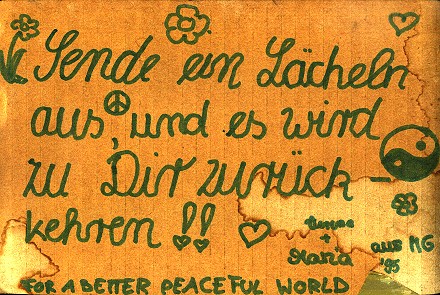 Sende ein Lächeln
aus, und es wird
zu Dir zurück-
kehren !!
+
Maria
aus MG
'95
FOR A BETTER PEACEFUL WORLD